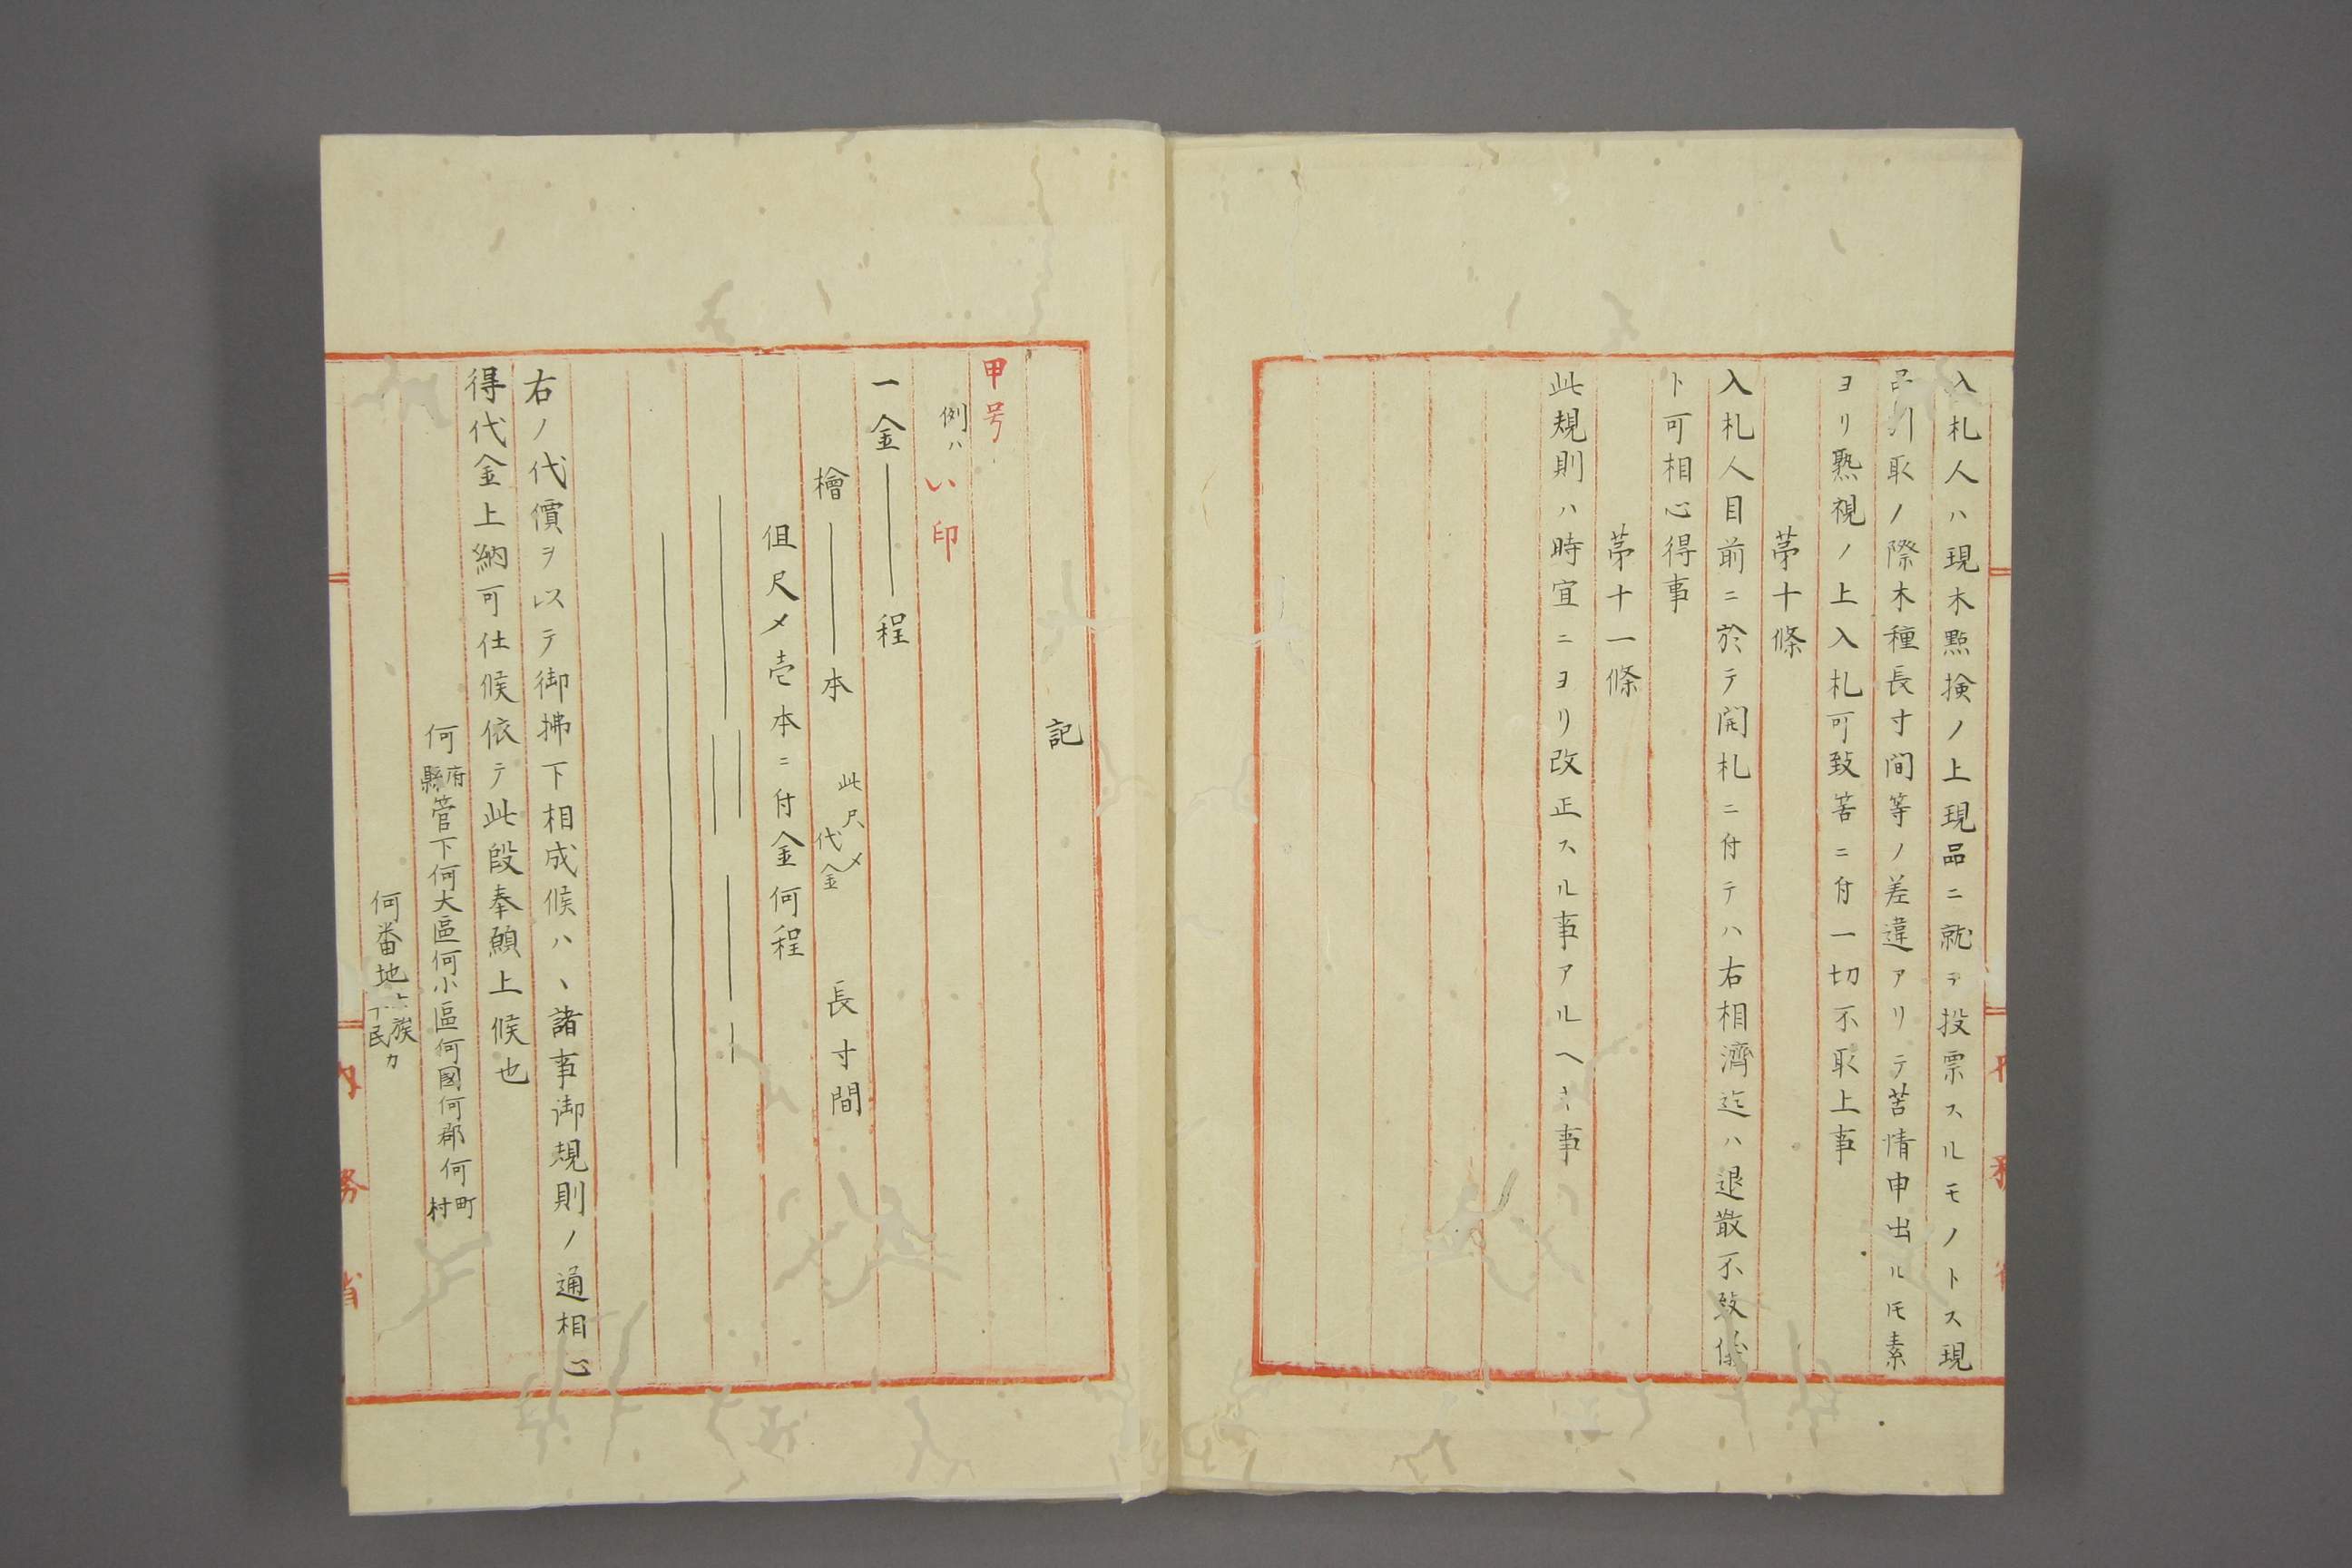 入札人ハ現木點撿ノ上現品ニ就テ投票スルモノトス現
品引取ノ際木種長寸間等ノ差違アリテ苦情申出ルモ素
ヨリ熟視ノ上入札可致筈ニ付一切不取上事
第十條
入札人目前ニ於テ開札ニ付テハ右相濟迄ハ退散不致儀
ト可相心得事
第十一條
此規則ハ時宜ニヨリ改正スル事アルヘキ事
記
甲号
例ハ い印
一金 程
檜 本 此尺〆 代金 長寸間
但尺〆壱本ニ付金何程
右ノ代價ヲ以テ御拂下相成候ハヽ諸事御規則ノ通相心
得代金上納可仕候依テ此段奉願上候也
何府縣管下何大區何小區何國何郡何町村
何番地 族 民カ
内務省